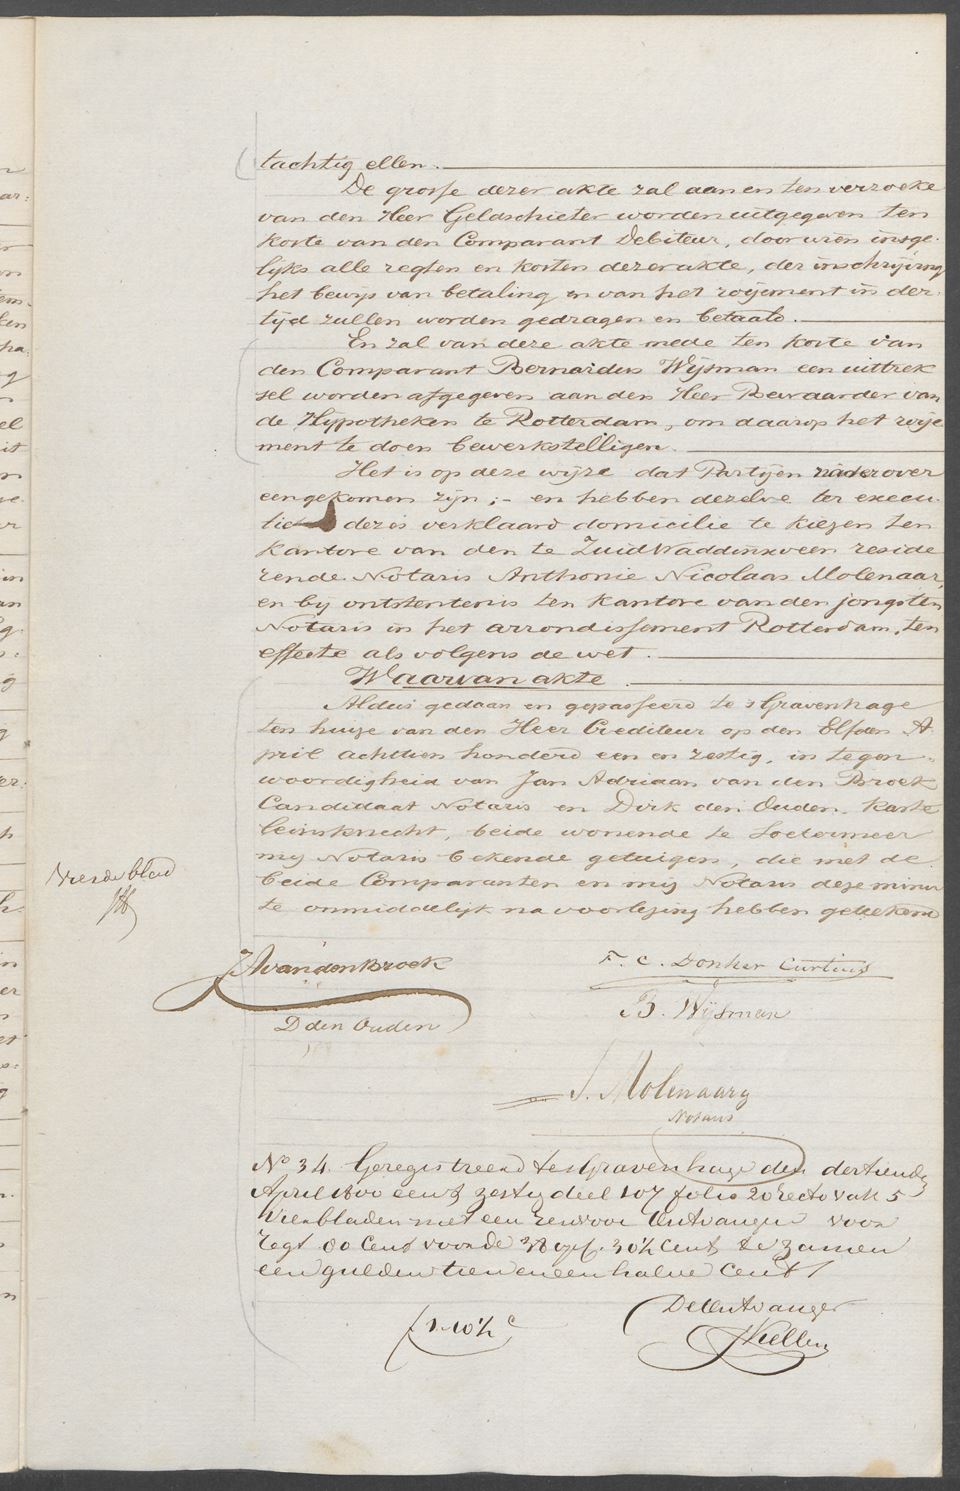 tachtig ellen.
De grosse dezer akte zal aan en ten verzoeke
van den Heer Geldschieter worden uitgegeven ten
koste van den Comparant Debiteur, door wien insge-
lijks alle regten en kosten dezer akte, der inschrijving
het bewijs van betaling en van het roijement in der-
tijd zullen worden gedragen en betaald.
En zal van deze akte mede ten koste van
den Comparant Bernardus Wijsman een uittrek
sel worden afgegeven aan den Heer Bewaarder van
de Hypotheken te Rotterdam, om daarop het roije-
ment te doen bewerkstelligen.
Het is op deze wijze dat Partijen nader over
eengekomen zijn; - en hebben dezelve ter execu-
tie dezes verklaard domicilie te kiezen ten
kantore van den te Zuid Waddinxveen reside
rende Notaris Anthonie Nicolaas Molenaar,
en bij ontstentenis ten kantore van den jongsten
Notaris in het arrondissement Rotterdam, ten
effecte als volgens de wet.
Waarvan akte.
Aldus gedaan en gepasseerd te 's Gravenhage
ten huize van den Heer Crediteur op den Elfden A
pril achttien honderd een en zestig, in tegen-
woordigheid van Jan Adriaan van den Broek
Candidaat Notaris en Dirk den Ouden, Karste
leinsknecht, beide wonende te Soetermeer
mij Notaris bekende getuigen, die met de
beide Comparanten en mij Notaris deze minu
te onmiddelijk na voorlezing hebben geteekend
Vierde blad
JA van den Broek
F. C. Donker Curtius
D den Ouden
B. Wijsman
Molenaar
Notaris
No 34. Geregistreerd te s Gravenhage den dertienden
April 1800 een & zestig deel 107 folio 20 recto vak 5
Vier bladen met een renvooi Ontvangen voor
Regt 80 Cent voor de 38 opc. 30½ Cent te zamen
een gulden tien en een halve Cent
De Ontvanger
f 1.10½ c